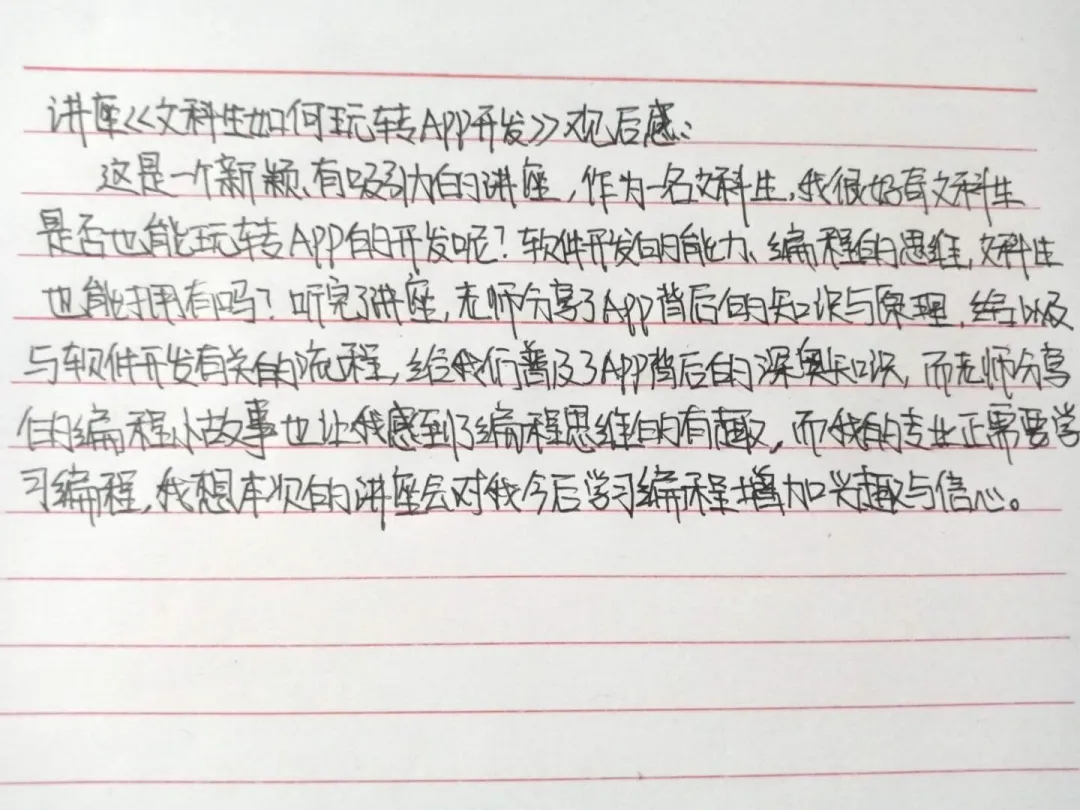 讲座《文科生如何玩转APP开发》观后感：
这是一个新颖、有吸引力的讲座，作为一名文科生，我很好奇文科生
是否也能玩转APP的开发呢？软件开发的能力、编程的思维，文科生
也能拥有吗？听完了讲座，老师分享了APP背后的知识与原理，以及
与软件开发有关的流程，给我们普及了APP背后的深奥知识，而老师分享
的编程小故事也让我感到了编程思维的有趣，而我的专业正需要学
习编程，我想本次的讲座会对我今后学习编程增加兴趣与信心。